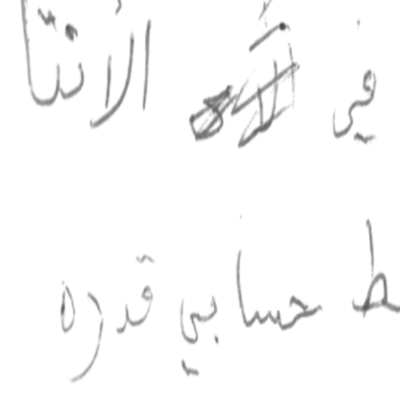 في الانتا
ط حسابي قدره